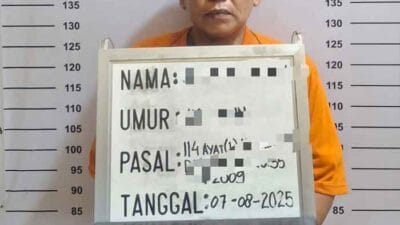 135
130
125
120
115
110
105
100
95
90
85
NAMA:
UMUR :
PASAL: 114 AYAT (1)
2009
TANGGAL: 07-08-2025
135
130
125
120
115
110
105
100
95
90
85